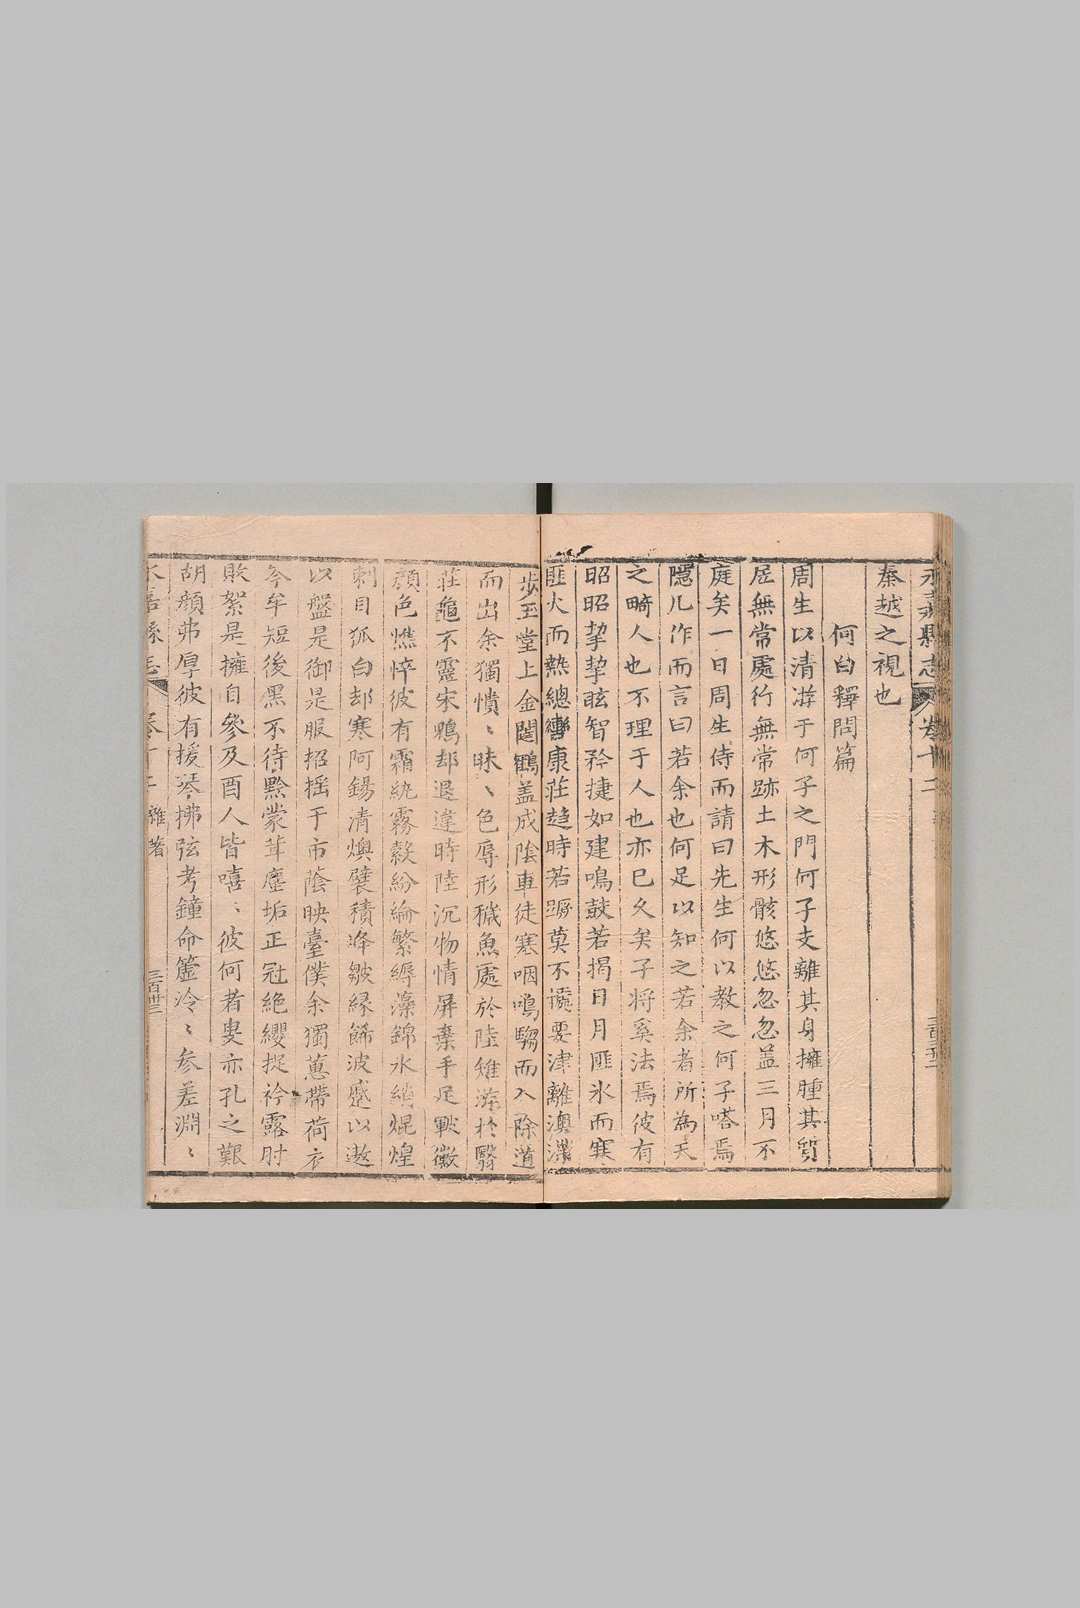 永嘉縣志 卷十二
秦越之視也
何白釋問篇
周生以清游于何子之門何子支離其身擁腫其質
居無常處行無常跡土木形骸悠悠忽忽盖三月不
庭矣一日周生侍而請曰先生何以教之何子嗒焉
隱几作而言曰若余也何足以知之若余者所為天
之畸人也不理于人也亦已久矣子将奚法焉彼有
昭昭挈挈眩智矜捷如建鳴鼓若揭日月匪氷而寒
匪火而熱總轡康莊趋時若蹶莫不擴要津離澳渫
步玉堂上金闥鶴盖成陰車徒寒咽鳴騶而入除道
而出余獨憒、昧、色辱形穢魚處於陸雉游於翳
莊龜不靈宋鷁却退違時陸沉物情屏棄手足皸黴
顔色憔悴彼有霜紈霧縠紛綸繁縟藻錦氷綃焜煌
刺目狐白却寒阿錫清燠襞積峰皺緣餙波蹙以遨
以盤是御是服招揺于市陰映臺僕余獨蕙帶荷衣
今年短後黑不待黔蒙茸塵垢正冠絶纓捉衿露肘
敗絮是擁自參及酉人皆嘻、彼何者叟亦孔之艱
胡顔弗厚彼有援琴拂弦考鐘命簴泠、参差淵、
永嘉縣志 卷十二 雜著 三百卅三